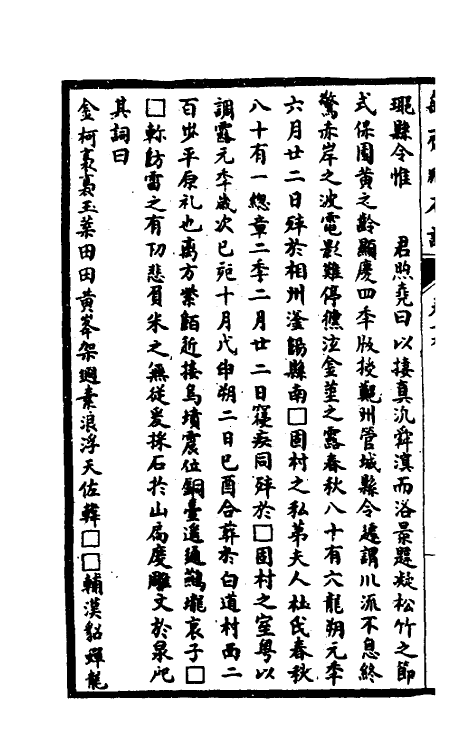 瑯縣令惟 君煦堯日以摟真沠舜滇而洛景題凝松竹之節
式保園黄之齡顯慶四秊版授鄭州管城縣令遽謂川派不息終
驚赤岸之波電影難停㒩泣金莖之露春秋八十有六龍朔元秊
六月廿二日殍於相州滏陽縣南□固村之私弟夫人杜氏春秋
八十有一緫章二秊二月廿二日寢疾同殍於□固村之室粤以
調露元秊歳次已夘十月戊申朔二日已酉合葬於白道村西二
百步平原礼也离方縈䤥近接烏墳震位銅臺遥通鶴壠哀子□
□軫魴雷之有切悲負米之無從爰採石於山扃慶雕文於泉戺
其詞曰
金柯裊裊玉葉田田黄峯架逈素浪浮天佐韓□□輔漢貂蟬龍